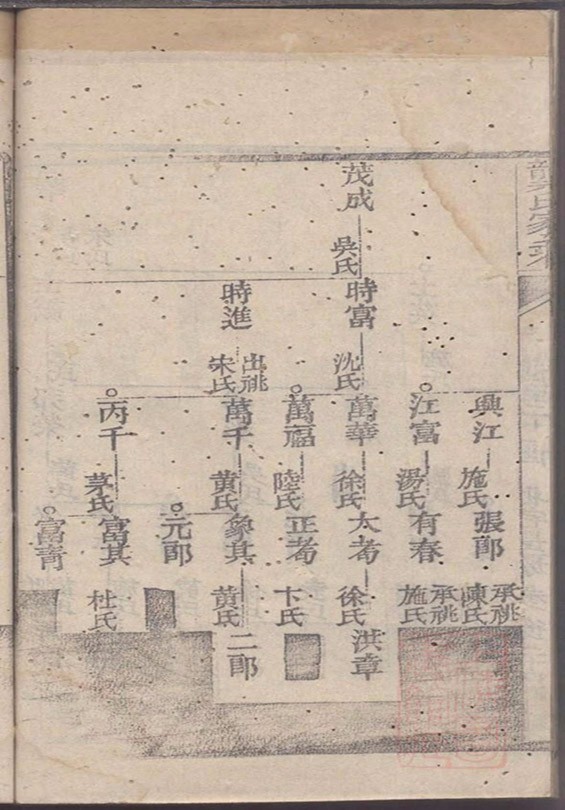 龔氏家乘
興江
施氏
張郎
承祧
陳氏
江富
湯氏
有春
承祧
施氏
茂成
吳氏
時富
沈氏
萬華
徐氏
大耇
徐氏
洪章
萬福
陸氏
正耇
卞氏
時進
出祧
宋氏
萬千
黃氏
象其
黃氏
二郎
元郎
丙千
茅氏
富其
杜氏
富青